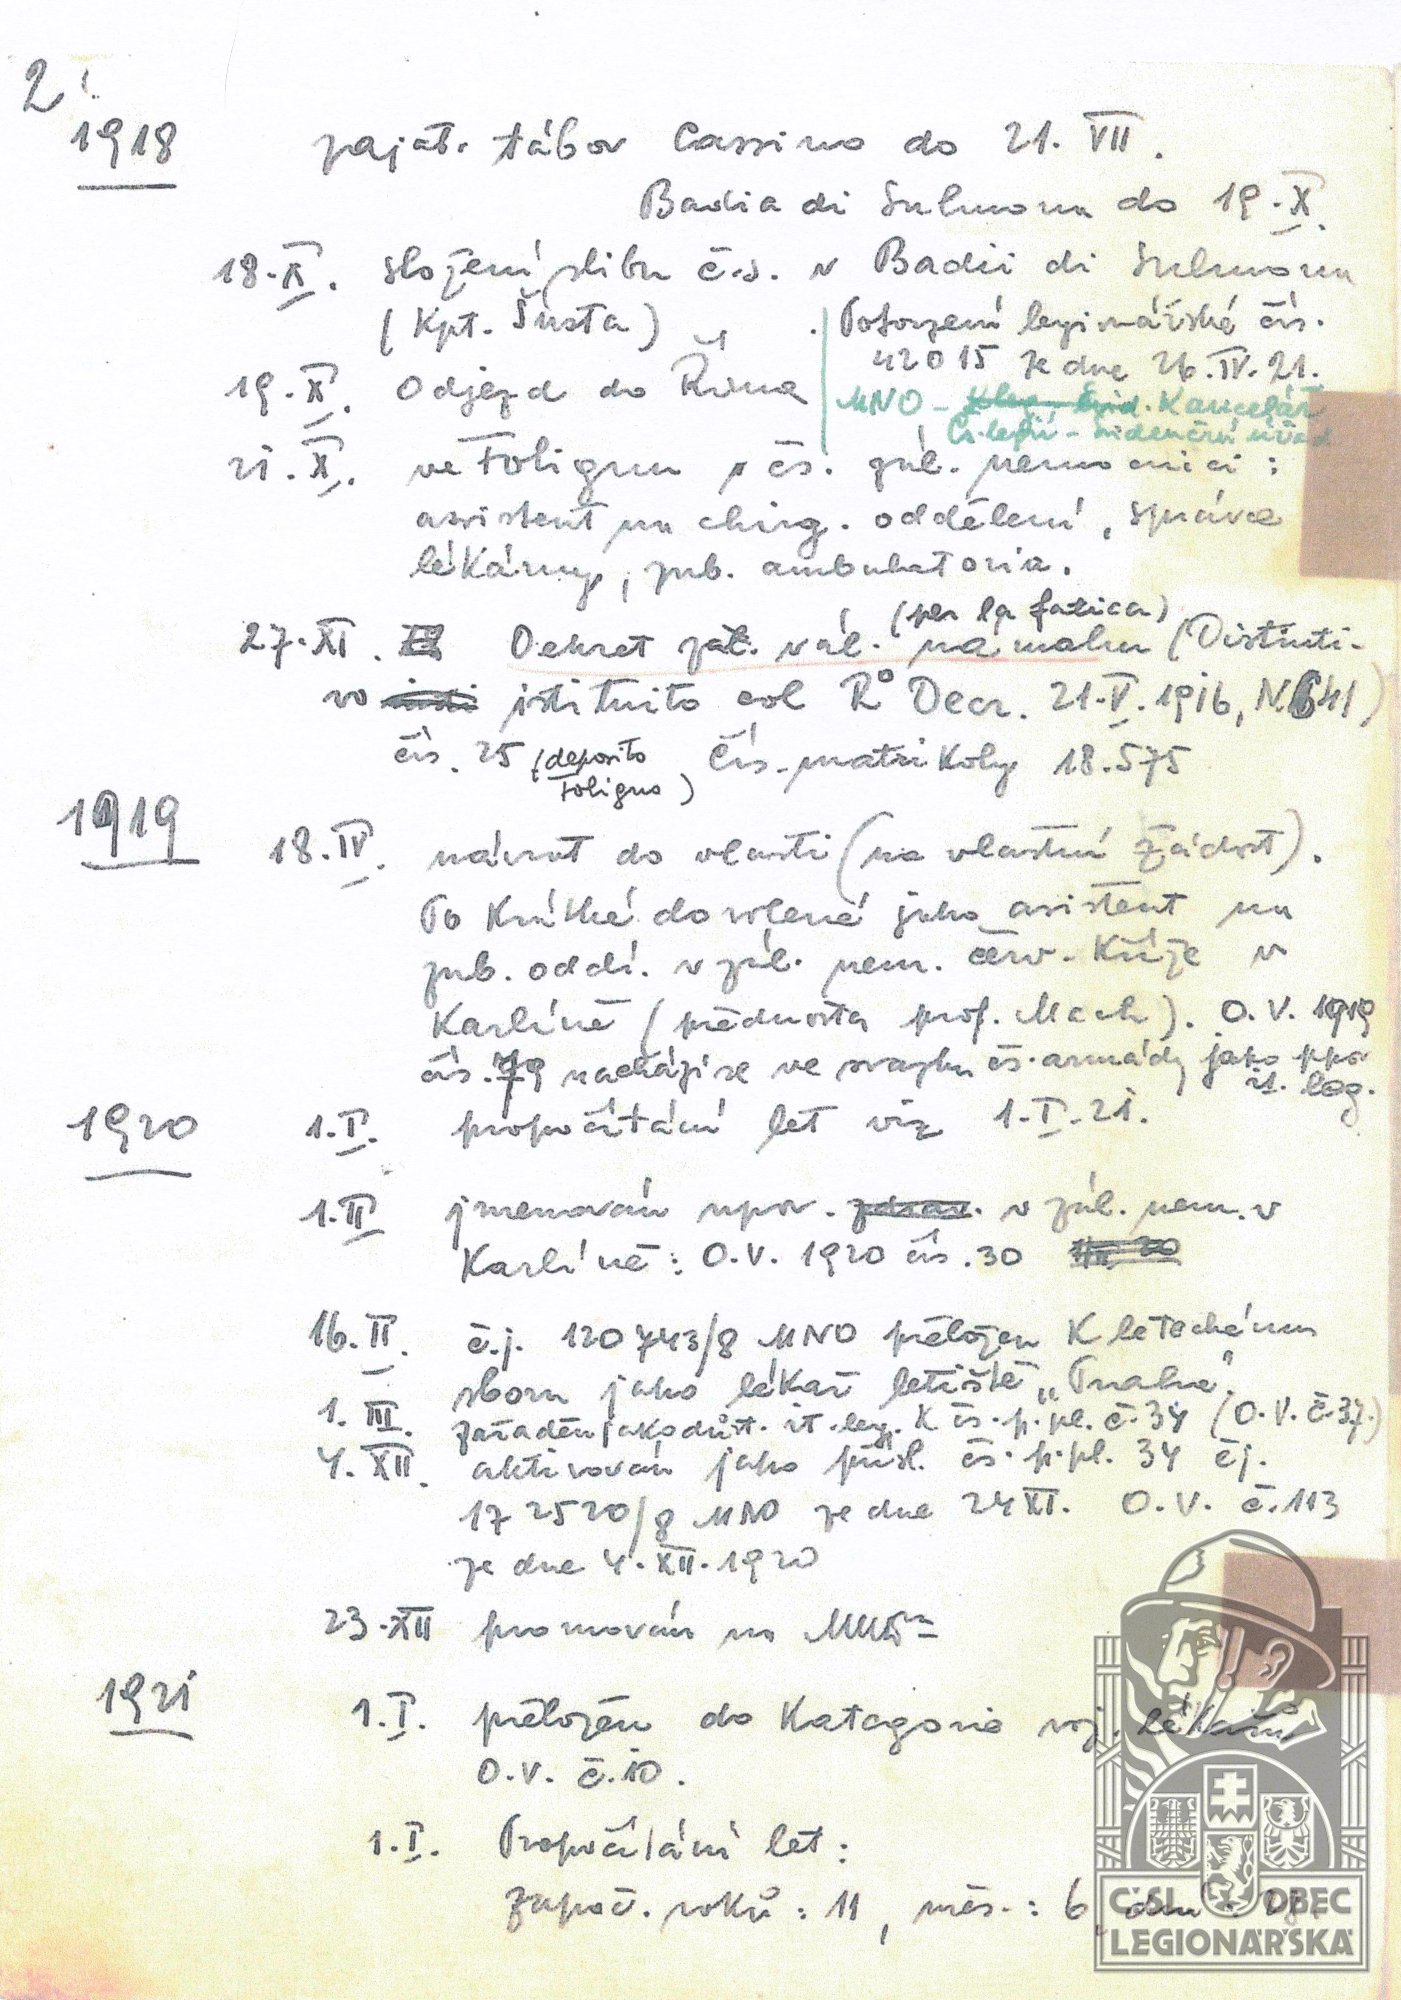 2.
1918 zajat. tábor Cassino do 21. VII.
Badia di Sulmona do 19. X.
18. X. složení slibu č.s. v Badii di Sulmona
(Kpt. Šusta)
Potvrzení legionářské čís.
42015 ze dne 26. IV. 21.
MNO - Kancelář
čs. legií -
19. X. Odjezd do Říma
21. X. ve Folignu v čs. pol. nemocnici:
asistent na chirg. oddělení, správce
lékárny, zub. ambulatoria.
27. XI. Dekret zál. vál. (per la fatica) na mahu (Distinti-
vo istituito col R° Decr. 21. V. 1916, N. 641)
čís. 25 (deposito Foligno) Čís. matriKoly 18.575
1919 18. IV. návrat do vlasti (na vlastní žádost).
Po Krátké dovolené jako asistent na
zub. odděl. v zál. nem. červ. Kříže v
Karlíně (přednosta prof. Mach). O.V. 1919
čís. 79 nachází se ve svazku čs. armády jako ppor
it. leg.
1920 1. I. propočítání let viz 1. I. 21.
1. II jmenován npor. zdrav. v zál. nem. v
Karlíně: O.V. 1920 čís. 30
16. II. č.j. 120743/8 MNO přeložen K leteckému
sboru jako lékař letiště „Praha“
1. III. zařaděn jako důst. it. leg. K čs. p. pl. č. 34 (O.V. č. 37.)
4. XII. aktivován jako přísl. čs. p. pl. 34 čj.
172520/8 MNO ze dne 24 XI. O.V. č. 113
ze dne 4. XII. 1920
23. XII promován na MUDr
1921 1. I. přeložen do Kategorie voj. lékařů
O.V. č. 10.
1. I. Propočítání let:
započ. roků: 11, měs.: 6, dnů:
ČSL. OBEC
LEGIONÁŘSKÁ